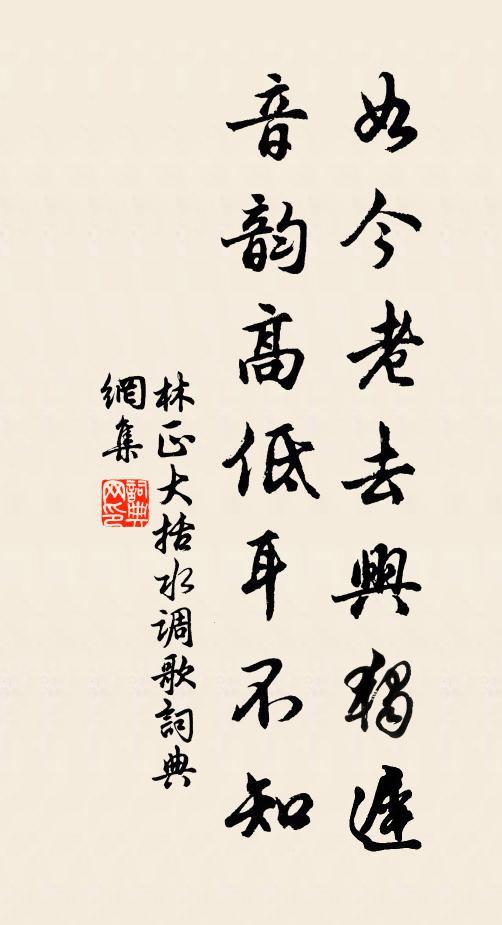 如今老去興獨遲
音韵高低耳不知
林正大括水调歌詞典
網集
詞典
网印